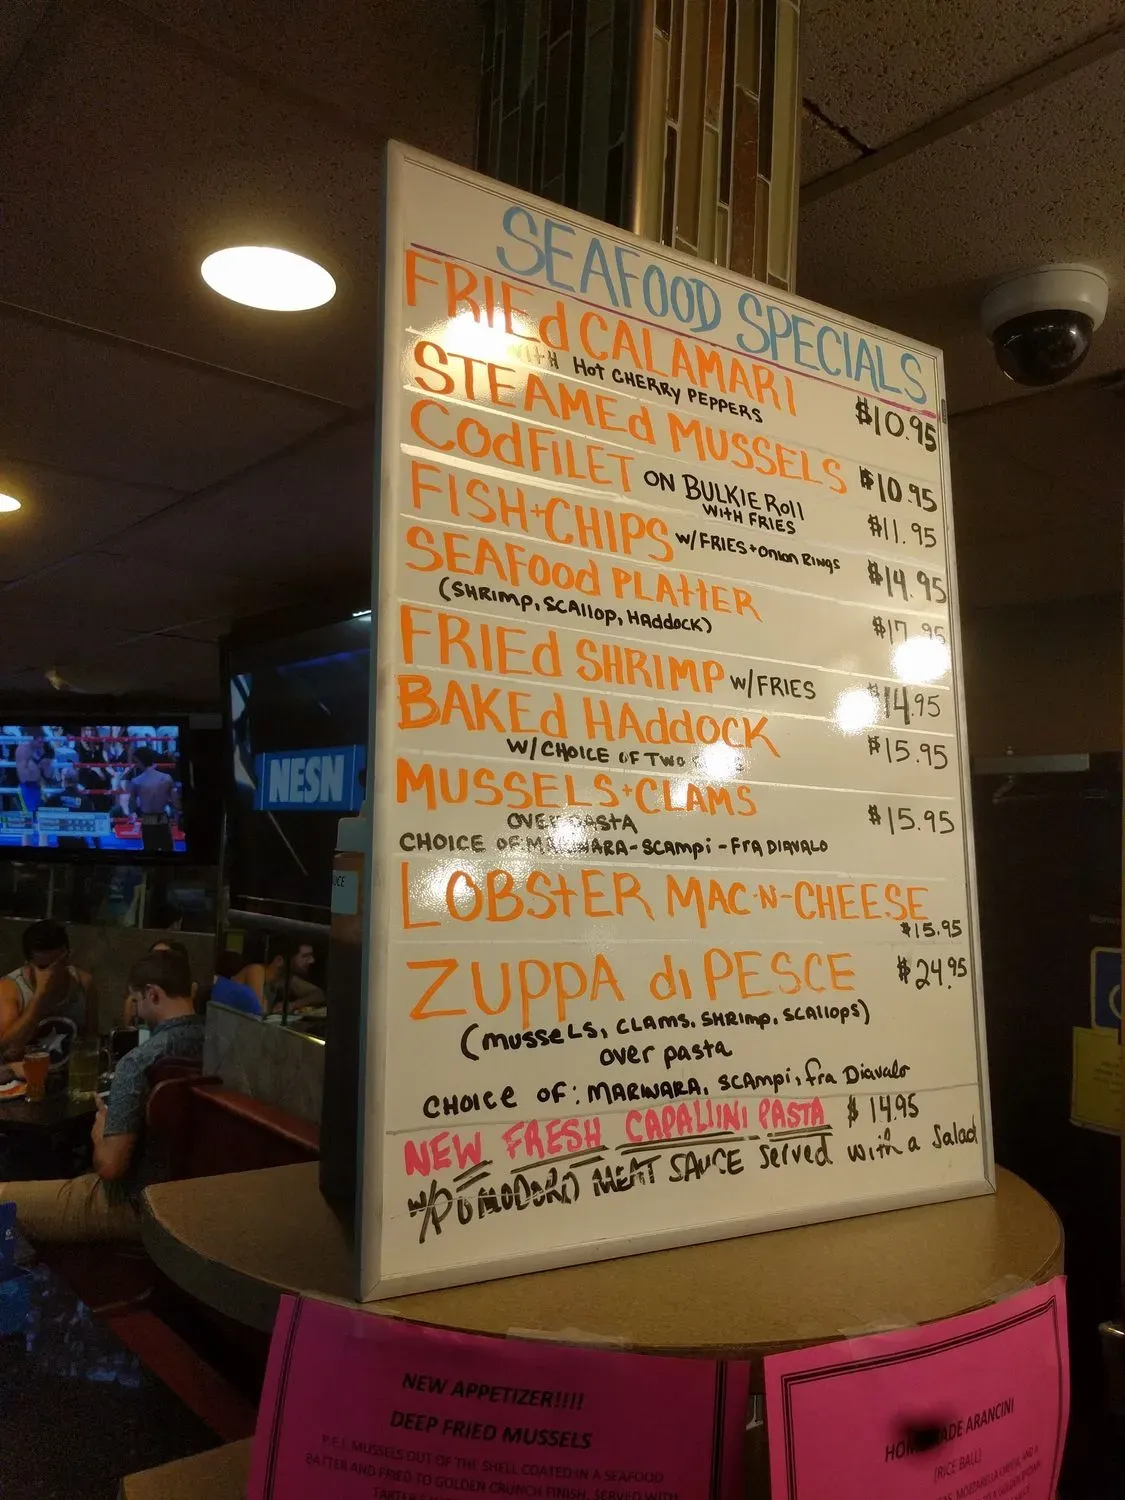 SEAFOOD SPECIALS
FRIEd CALAMARI
WITH HOT CHERRY PEPPERS $10.95
STEAMEd MUSSELS $10.95
COdFILET ON BULKIE ROll
WITH FRIES $11.95
FISH+CHIPS W/FRIES+ONION RINGS $14.95
SEAFOOd PLAttER
(SHRIMP, SCALLOP, HAddOCK) $17.95
FRIEd SHRIMP W/FRIES $14.95
BAKEd HAddOCK $15.95
W/CHOICE OF TWO
MUSSELS+CLAMS $15.95
OVER PASTA
CHOICE OF MARINARA-SCAMPI-FRA DIAVALO
LOBStER MAC-N-CHEESE
$15.95
ZUPPA di PESCE $24.95
(MUSSELS, CLAMS, SHRIMP, SCALLOPS)
OVER PASTA
CHOICE OF: MARINARA, SCAMPI, FRA DIAVALO
NEW FRESH CAPALLINI PASTA $14.95
W/POMODORO MEAT SAUCE served with a Salad
NESN
NEW APPETIZER!!!!
DEEP FRIED MUSSELS
P.E.I. MUSSELS OUT OF THE SHELL COATED IN A SEAFOOD
BATTER AND FRIED TO GOLDEN CRUNCH FINISH. SERVED WITH
ADE ARANCINI
(RICE BALL)